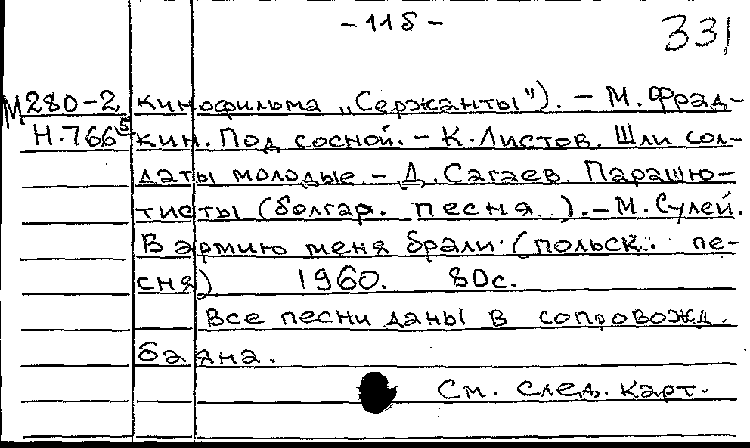 -118-
331
М280-2 кинофильма „Сержанты"). - М. Фрад-
Н.766⁵ кин. Под сосной. - К. Листов. Шли сол-
даты молодые. - Д. Сагаев. Парашю-
тисты (болгар. песня). - М. Сулей.
В армию меня брали (польск. пе-
сня) 1960. 80с.
Все песни даны в сопровожд.
баяна.
См. след. карт.